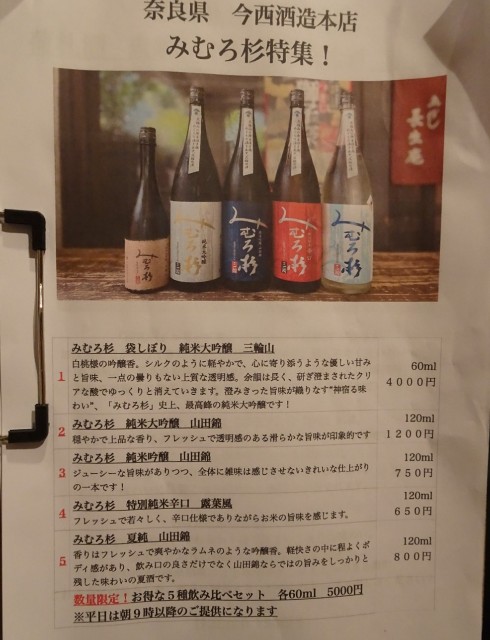 奈良県　今西酒造本店
みむろ杉特集！
みむろ杉
みむろ杉
純米大吟醸
みむろ杉
みむろ杉
みむろ杉
1
みむろ杉　袋しぼり　純米大吟醸　三輪山
白桃様の吟醸香。シルクのように軽やかで、心に寄り添うような優しい甘み
と旨味、一点の曇りもない上質な透明感。余韻は長く、研ぎ澄まされたクリ
アな酸でゆっくりと消えていきます。澄みきった旨味が織りなす"神宿る味
わい"、「みむろ杉」史上、最高峰の純米大吟醸です！
60ml
4000円
2
みむろ杉　純米大吟醸　山田錦
穏やかで上品な香り、フレッシュで透明感のある滑らかな旨味が印象的です
120ml
1200円
3
みむろ杉　純米吟醸　山田錦
ジューシーな旨味がありつつ、全体に雑味は感じさせないきれいな仕上がり
の一本です！
120ml
750円
4
みむろ杉　特別純米辛口　露葉風
フレッシュで若々しく、辛口仕様でありながらお米の旨味を感じます。
120ml
650円
5
みむろ杉　夏純　山田錦
香りはフレッシュで爽やかなラムネのような吟醸香。軽快さの中に程よくボ
ディ感があり、飲み口の良さだけでなく山田錦ならではの旨みをしっかりと
残した味わいの夏酒です。
120ml
800円
数量限定！お得な５種飲み比べセット　各60ml　5000円
※平日は朝９時以降のご提供になります